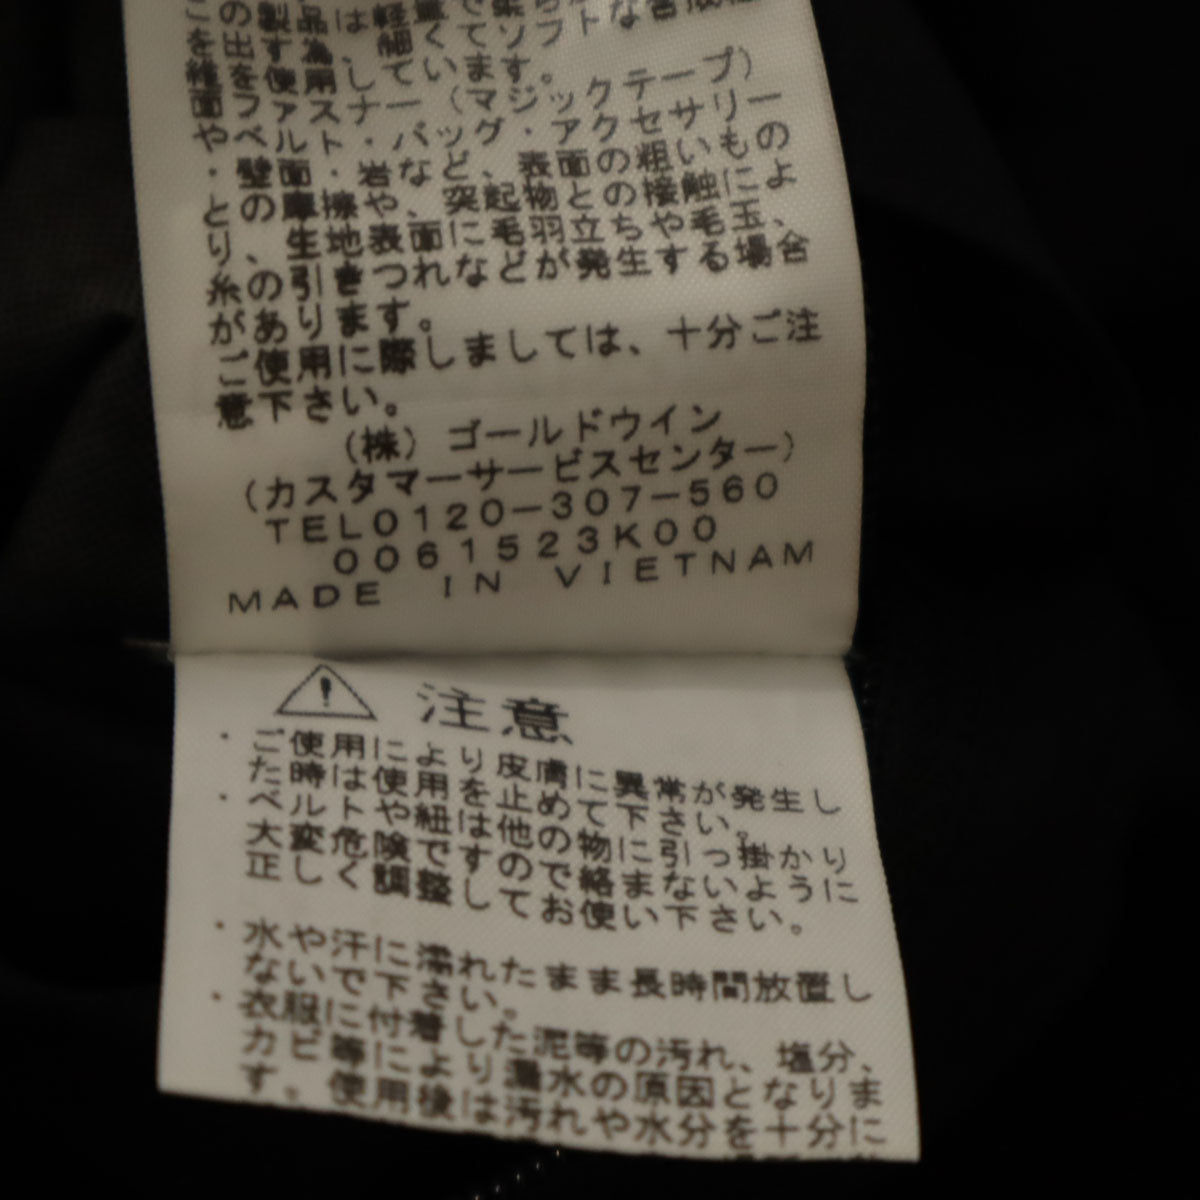 製品は、軽くてソフトな合成繊
す為、細
を使用しています。
面ファスナー（マジックテープ）
やベルト・バッグ・アクセサリー
・壁面・岩など、表面の粗いもの
との摩擦や、突起物との接触によ
り、生地表面に毛羽立ちや毛玉、
糸の引きつれなどが発生する場合
があります。
ご使用に際しましては、十分ご注
意下さい。
（株）ゴールドウイン
（カスタマーサービスセンター）
TEL0120-307-560
0061523K00
MADE IN VIETNAM
注意
・ご使用により皮膚に異常が発生し
た時は使用を止めて下さい。
・ベルトや紐は他の物に引っ掛かり
大変危険ですので絡まないように
正しく調整してお使い下さい。
・水や汗に濡れたまま長時間放置し
ないで下さい。
・衣服に付着した泥等の汚れ、塩分、
カビ等により漏水の原因となりま
す。使用後は汚れや水分を十分に